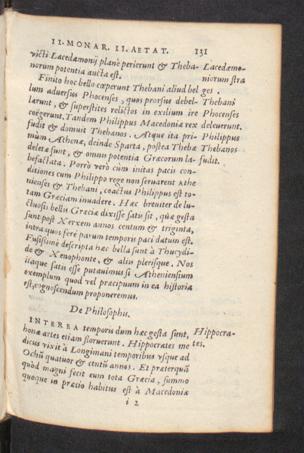 II. MONAR. II. AETAT. 131
victi Lacedæmonij planè perierunt & Theba- Lacedæmo-
norum potentia aucta est. niorum stra
Finito hoc bello cœperunt Thebani aliud bel ges.
lum aduersus Phocenses, quos prorsus debel- Thebani
larunt, & superstites relictos in exilium ire Phocenses
coëgerunt. Tandem Philippus Macedonia rex delcuerunt.
fudit & domuit Thebanos. Atque ita pri- Philippus
mùm Athenæ, deinde Sparta, postea Thebæ Thebanos
deletæ sunt, & omnis potentia Græcorum la- fudit.
befactata. Porrò verò cùm initas pacis con-
ditiones cum Philippo rege non seruarent Athe
nienses & Thebani, coactus Philippus est to-
tam Græciam inuadere. Hæc breuiter de lu-
ctuosis bellis Græciæ dixisse satis sit, quæ gesta
sunt post Xerxem annos centum & triginta,
intra quos ferè parum temporis paci datum est.
Fusissimè descripta hæc bella sunt à Thucydi-
de & Xenophonte, & alijs plerisque. Nos
itaque satis esse putauimus si Atheniensium
exemplum quod vel præcipuum in ea historia
est, cognoscendum proponeremus.
De Philosophis.
INTEREA temporis dum hæc gesta sunt, Hippocra-
bonæ artes etiam floruerunt. Hippocrates me tes.
dicus vixit à Longimani temporibus vsque ad
Ochũ quatuor & centũ annos. Et præterquã
quòd magni fecit eum tota Græcia, summo
quoque in pretio habitus est à Macedoniæ
i 2